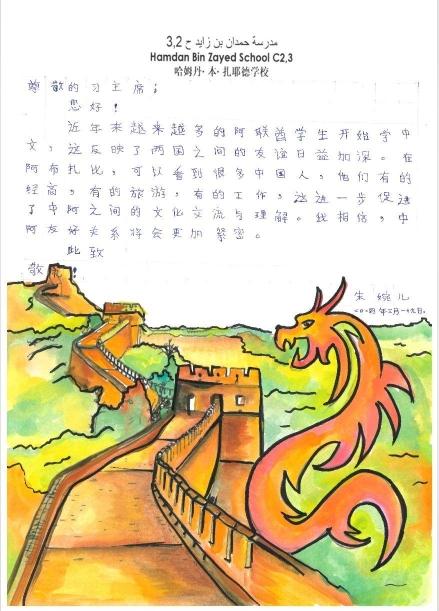 مدرسة حمدان بن زايد ح 3,2
Hamdan Bin Zayed School C2,3
哈姆丹·本·扎耶德学校
尊敬的习主席：
您好！
近年来越来越多的阿联酋学生开始学中
文，这反映了两国之间的友谊日益加深。在
阿布扎比，可以看到很多中国人，他们有的
经商，有的旅游，有的工作，这进一步促进
了中阿之间的文化交流与理解。我相信，中
阿友好关系将会更加紧密。
此致
敬礼！
朱婉儿